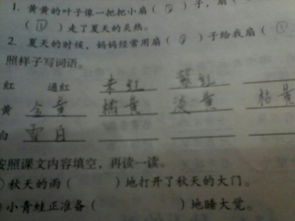 1. 黄黄的叶子像一把把小扇( ② )子,扇(
( ① )走了夏天的炎热。
2. 夏天的时候,妈妈经常用扇( ② )子给我扇( ①
照样子写词语。
红 通红 朱红
黄 金黄 橘黄 淡黄 枯黄
白 雪白
按照课文内容填空,再读一读。
)秋天的雨( )地打开了秋天的大门。
)小青蛙正准备( )地睡大觉。